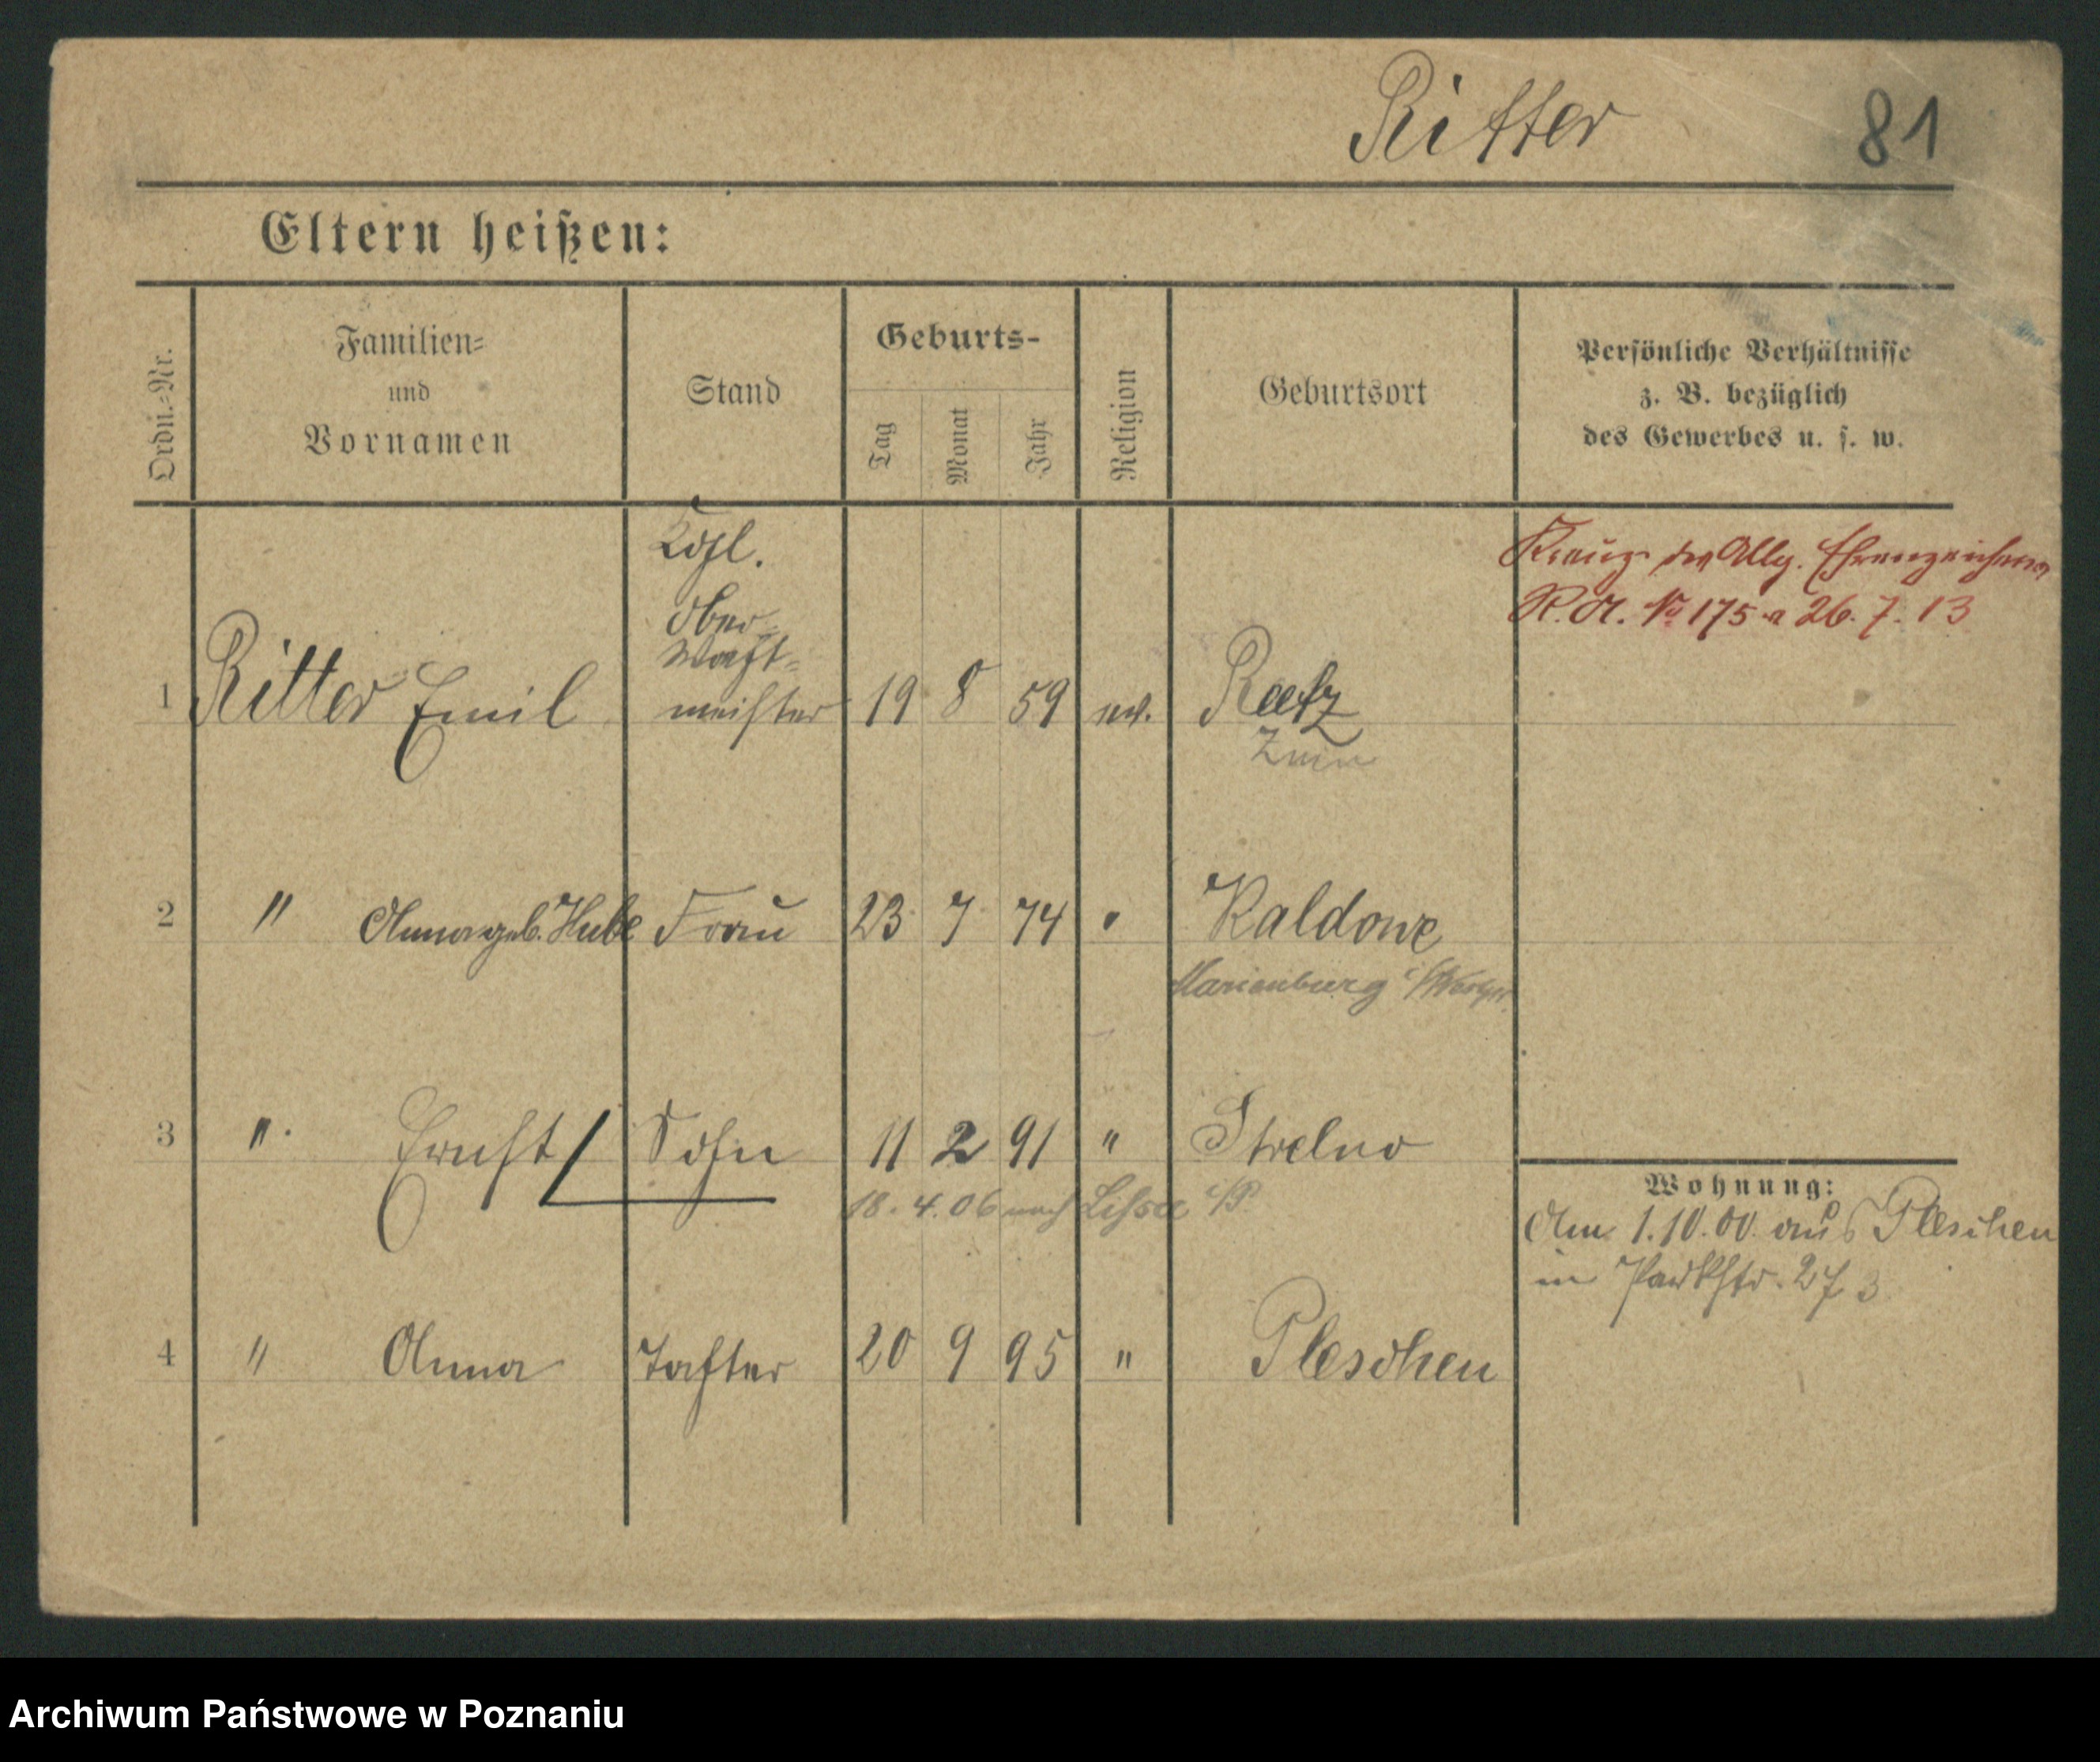 Ritter 81
Eltern heißen:
Ordn.-Nr.
Familien=
und
Vornamen
Stand
Geburts-
Tag
Monat
Jahr
Religion
Geburtsort
Persönliche Verhältnisse
z. B. bezüglich
des Gewerbes u. s. w.
Kreuz des Allg. Ehrenzeichens
R. A. No 175 a 26. 7. 13
Kgl.
Ober=
Wacht=
1 Ritter Emil meister 19 8 59 ev. Raetz
Znin
2 " Anna geb. Hube Frau 23 7 74 " Kaldowe
Marienburg i/Westpr.
3 " Ernst Sohn 11 2 91 " Strelno
18. 4. 06 nach Lissa i/P.
Wohnung:
Am 1.10.00. aus Pleschen
in Parkstr. 27 3
4 " Anna Tochter 20 9 95 " Pleschen
Archiwum Państwowe w Poznaniu